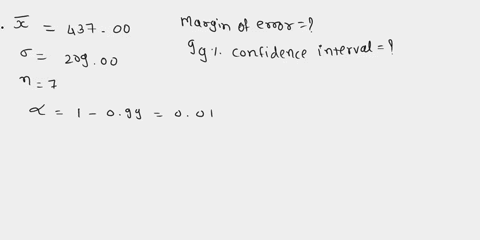 . x̄ = 437.00
σ = 209.00
n = 7
α = 1 - 0.99 = 0.01
Margin of error = ?
99% confidence interval = ?